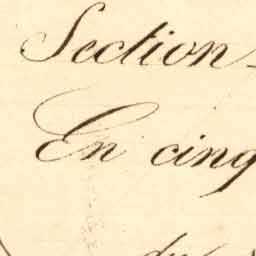 Section
En cinq